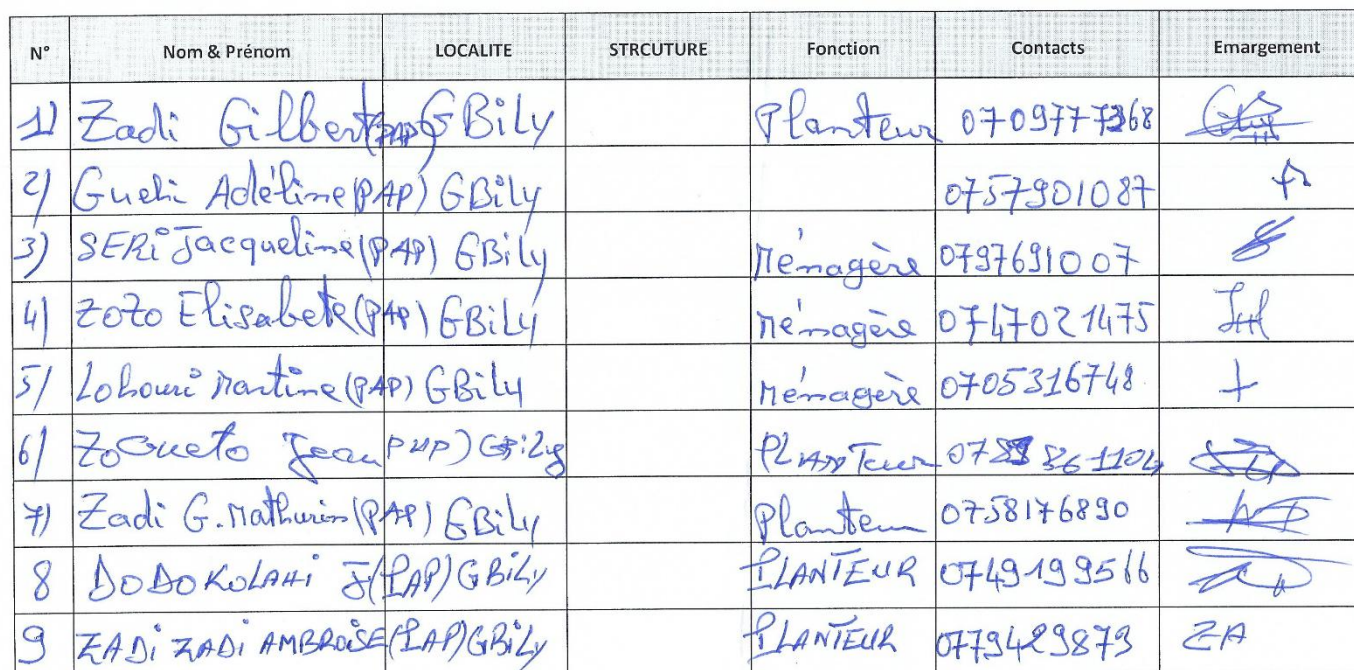 N° Nom & Prénom LOCALITE STRCUTURE Fonction Contacts Emargement
1) Zadi Gilbert (PAP) GBiLy Planteur 0709777368
2) Guehi Adéline (PAP) GBiLy 0757901087
3) SERi Jacqueline (PAP) GBiLy Ménagère 0797691007
4) ZoZo Elisabete (PAP) GBiLy Ménagère 0747021475
5) Lohouri Martine (PAP) GBiLy Ménagère 0705316748
6) Jean PAP) GBiLy PLANTeur
7) Zadi G. Mathurin (PAP) GBiLy Planteur 0758176890
8 DODO KOLAHI J (PAP) GBiLy PLANTEUR 0749199566
9 ZADi ZADi AMBROiSE (PAP) GBiLy PLANTEUR 0779429873 ZA